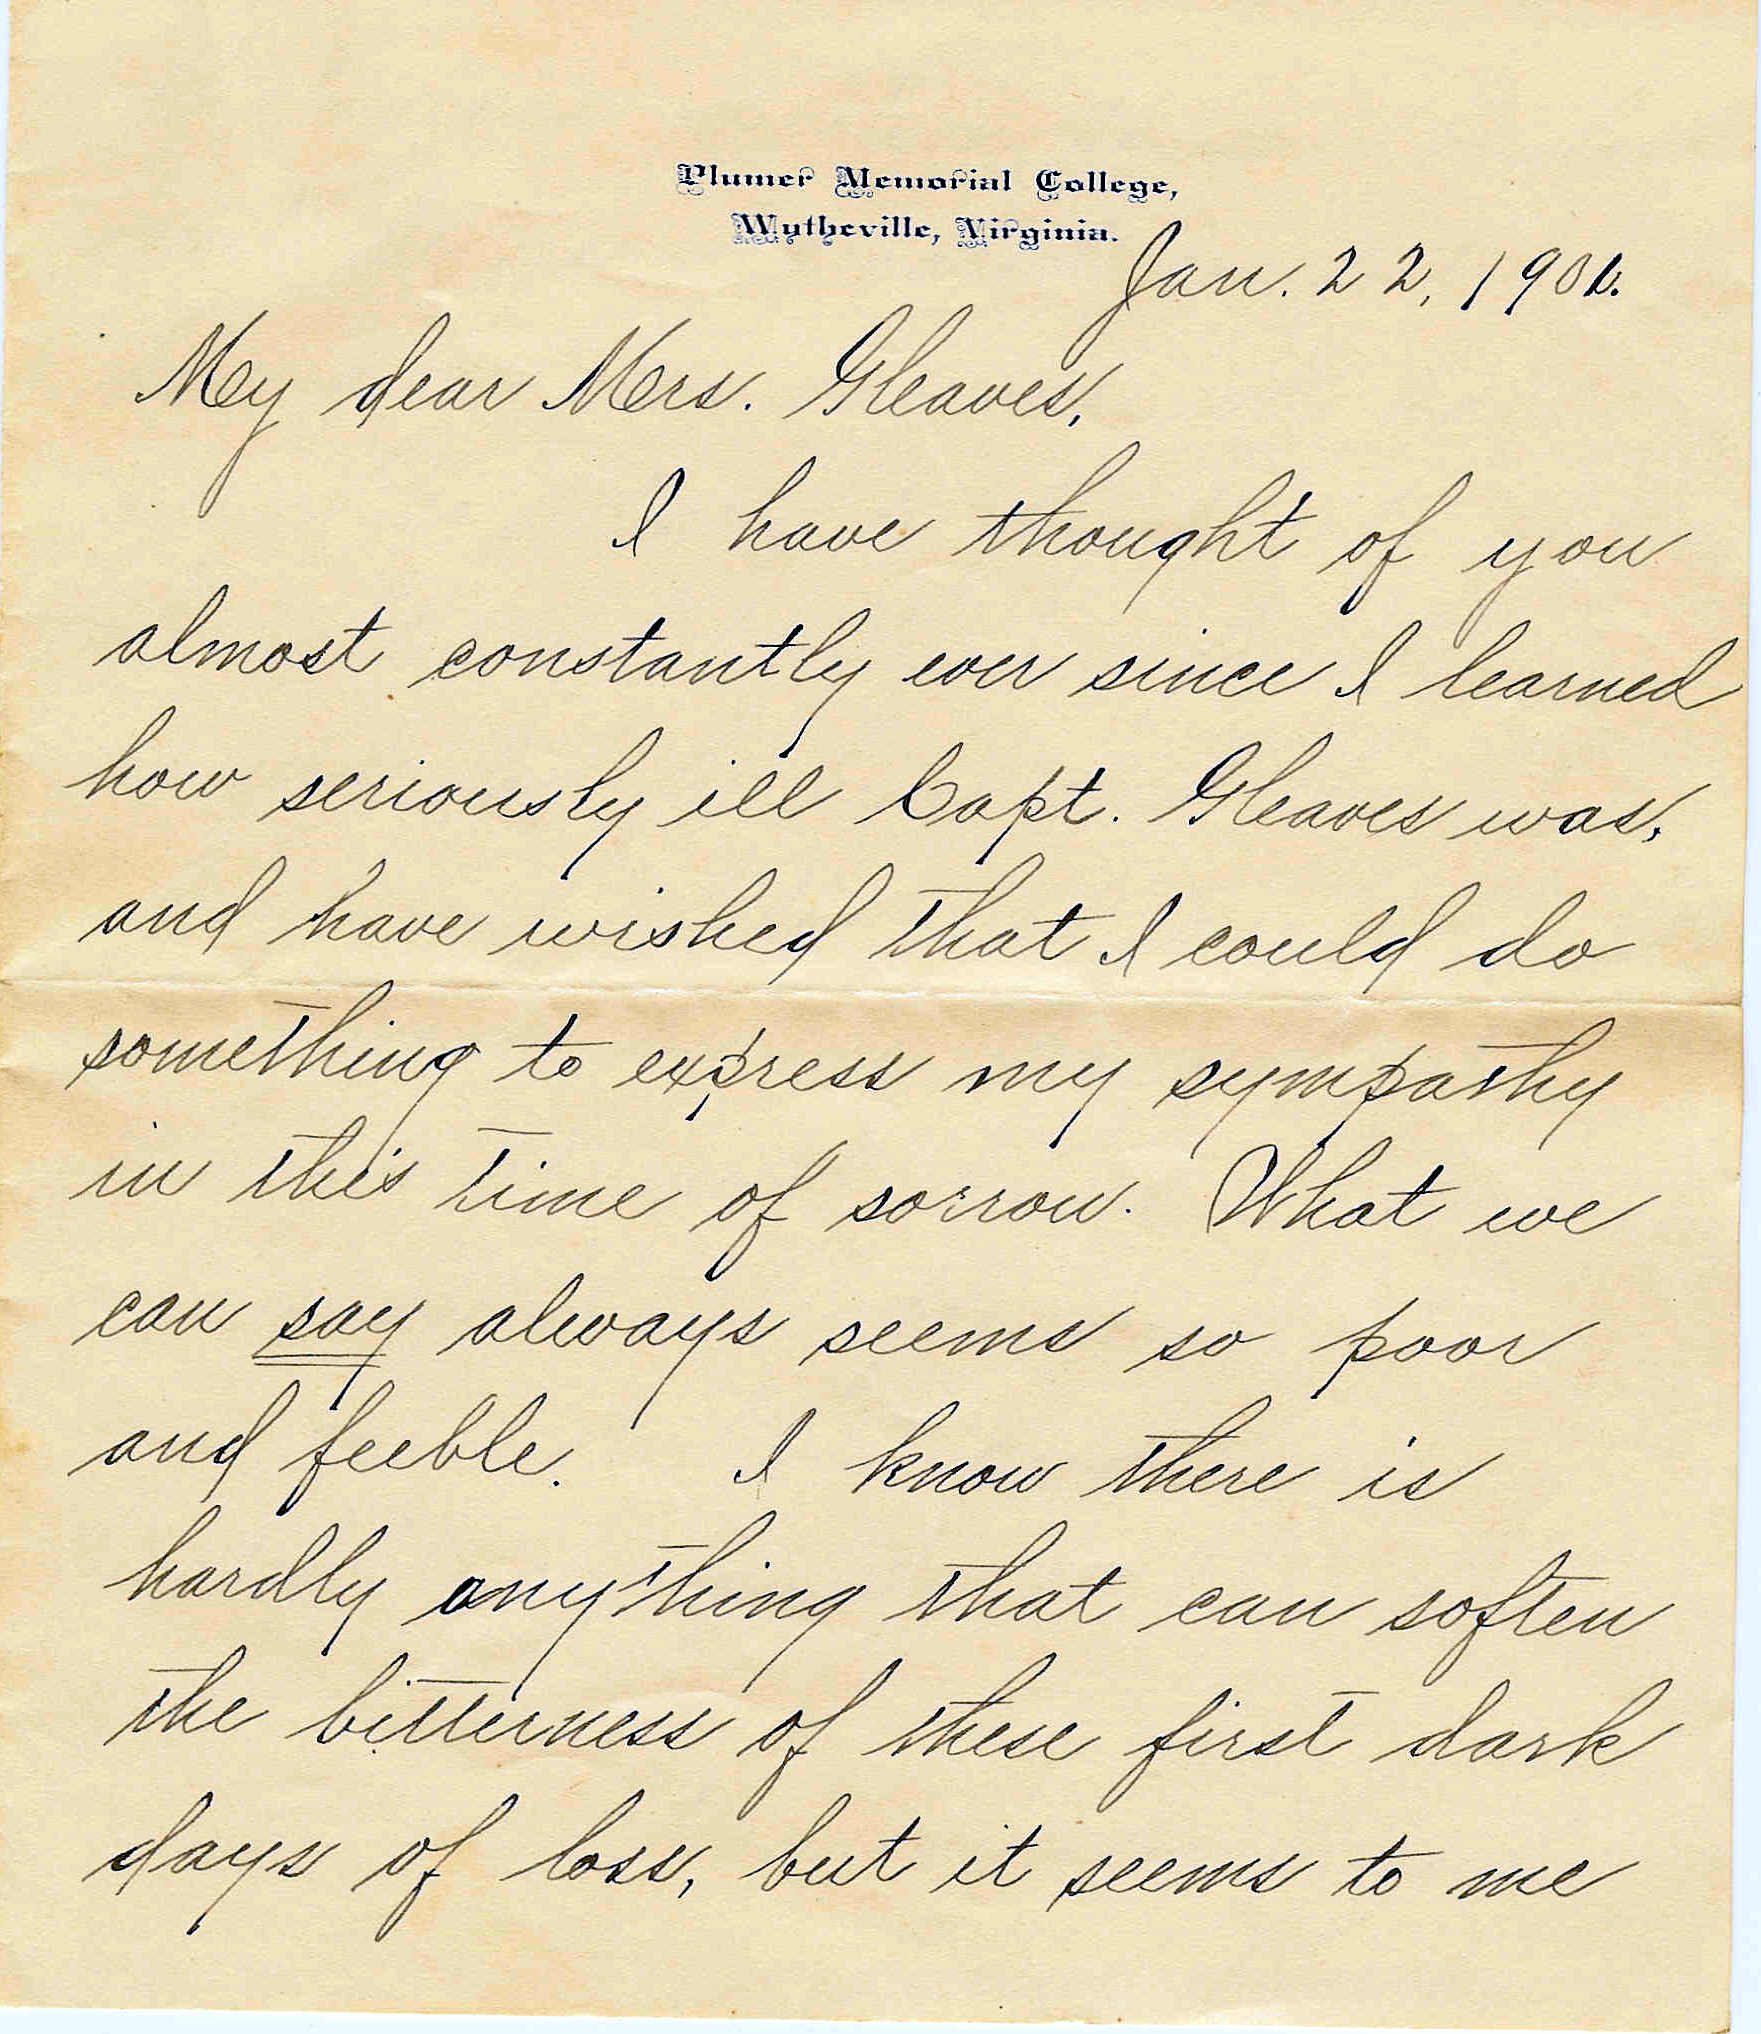 Plumer Memorial College,
Wytheville, Virginia.
Jan. 22, 
My dear Mrs. Gleaves,
I have thought of you
almost constantly ever since I learned
how seriously ill Capt. Gleaves was,
and have wished that I could do
something to express my sympathy
in this time of sorrow. What we
can say always seems so poor
and feeble. I know there is
hardly anything that can soften
the bitterness of these first dark
days of loss, but it seems to me